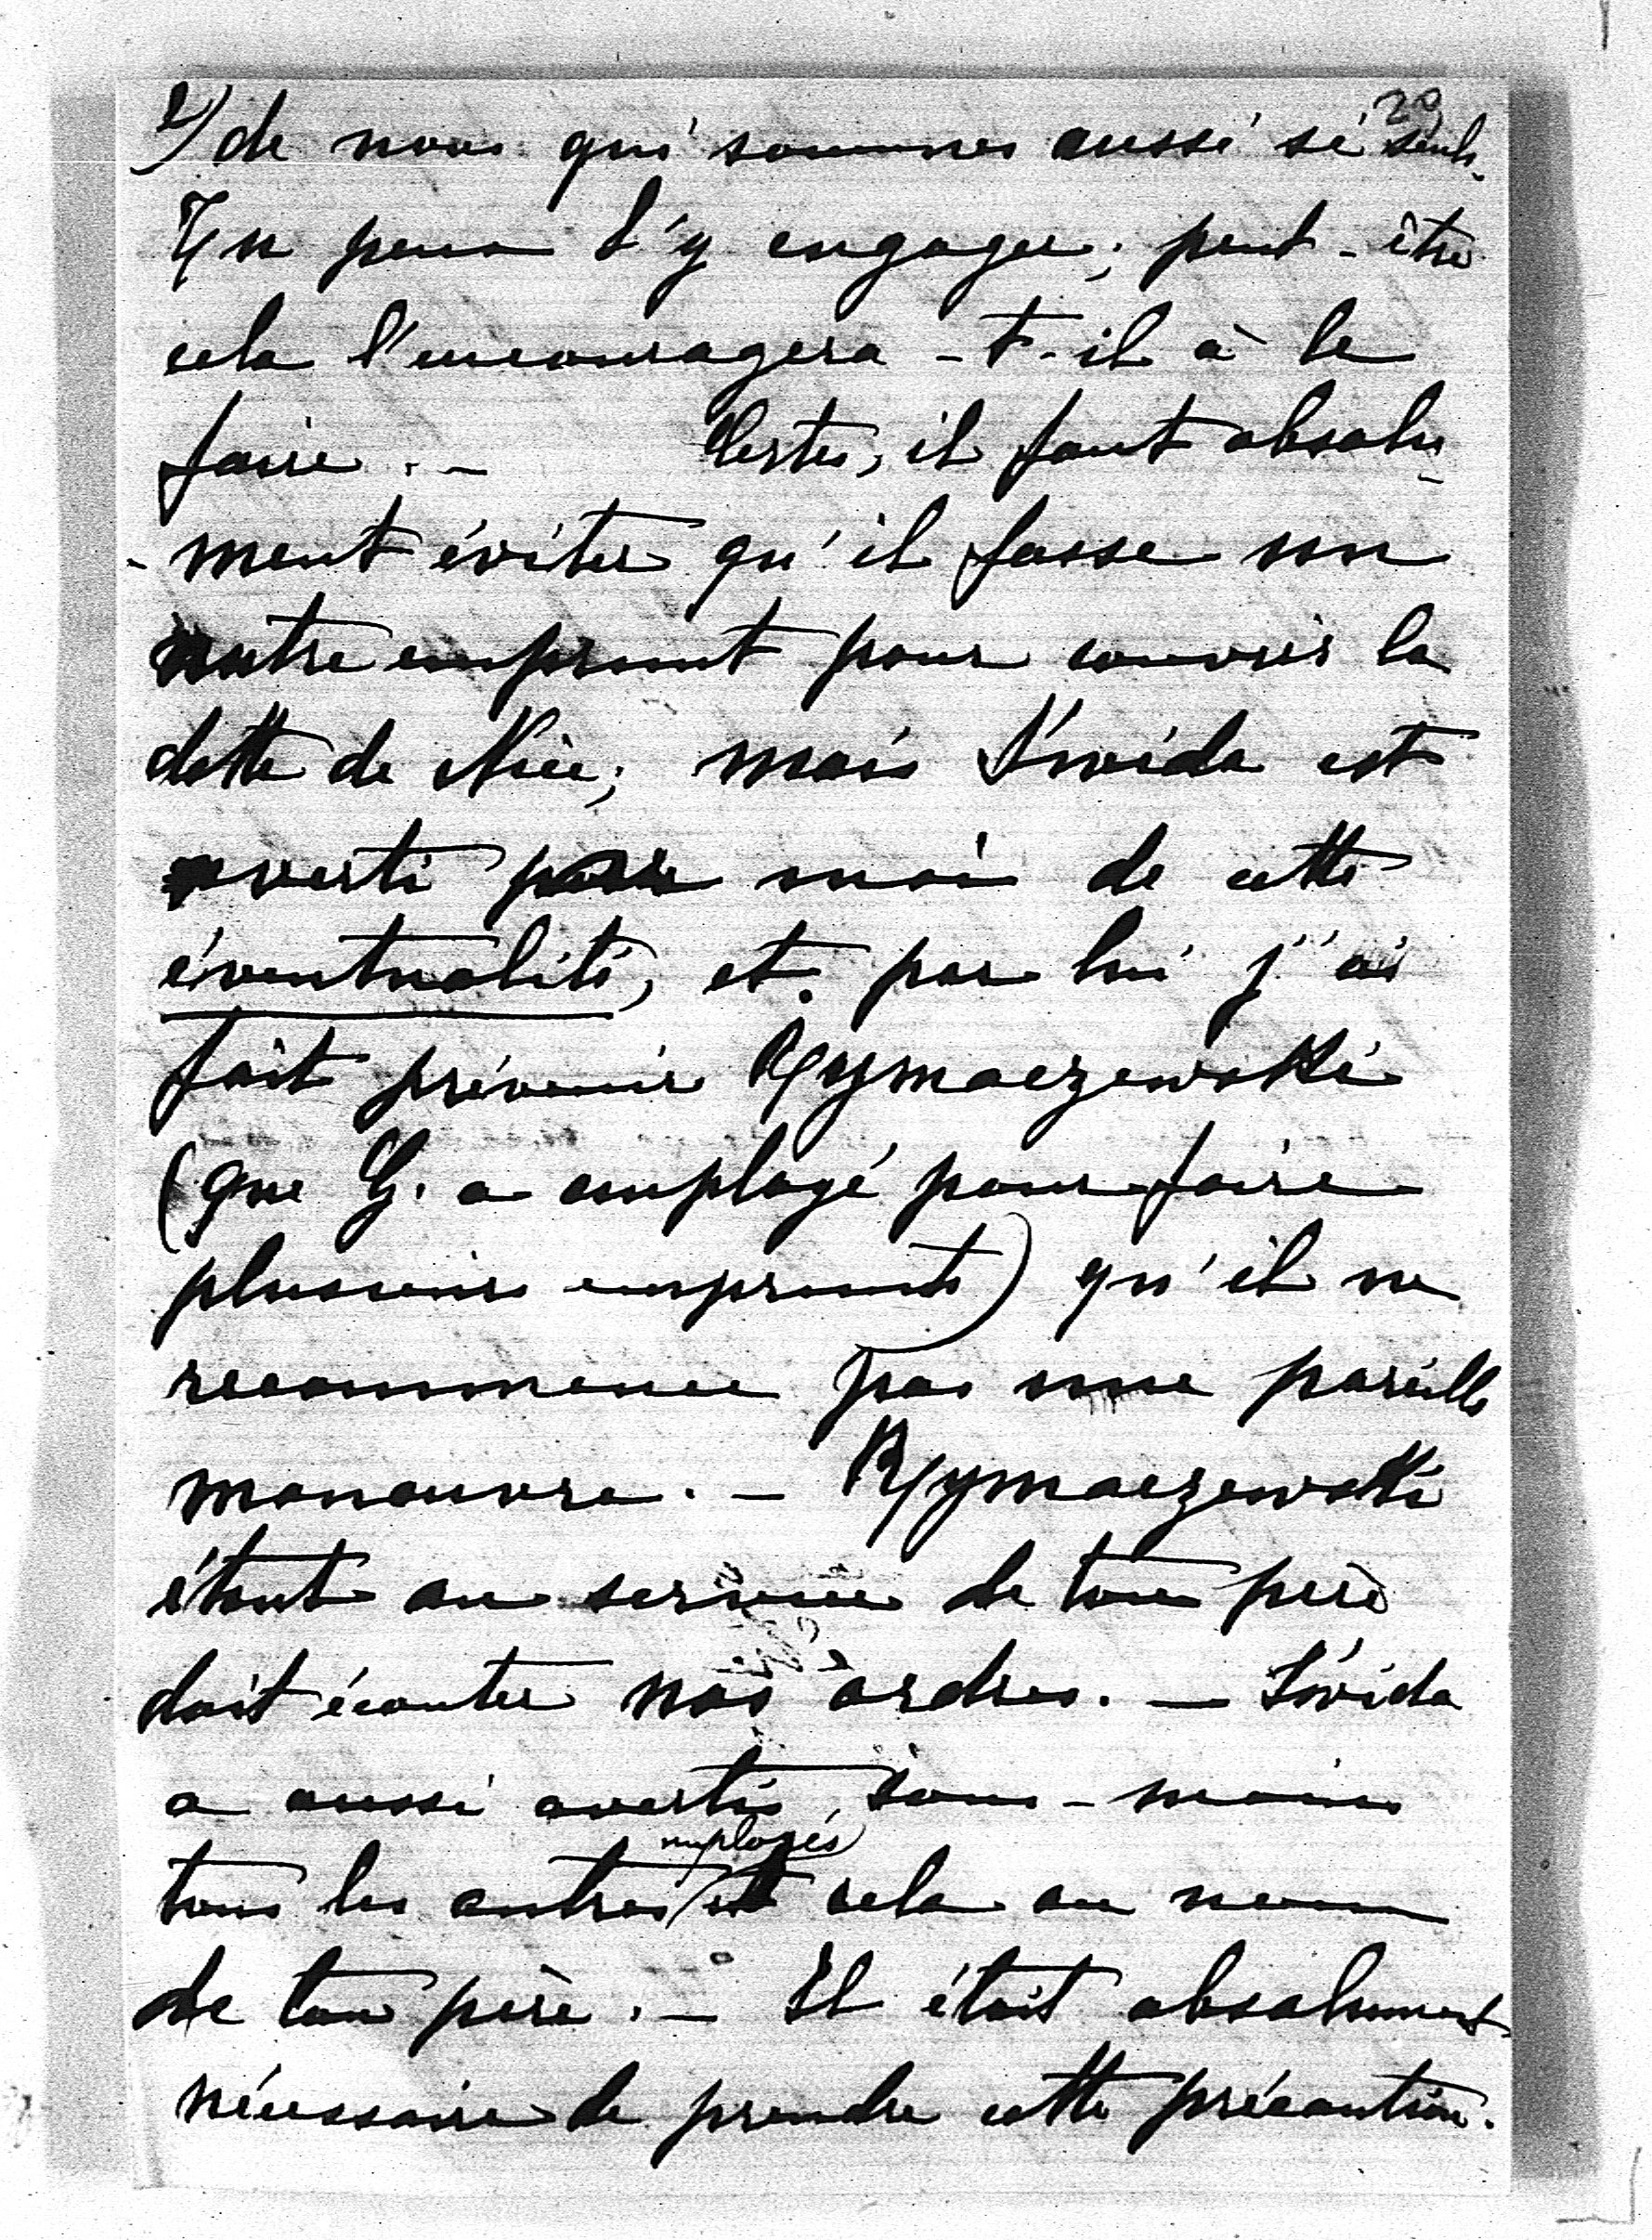 2) de nous qui sommes aussi si seuls.
Tu peux l'y engager; peut-être
cela l'encouragera-t-il à le
faire. – Certes, il faut absolu-
-ment éviter qu'il fasse un
autre emprunt pour couvrir la
dette de Nice; mais Swida est
averti par moi de cette
éventualité, et par lui j'ai
fait prévenir Rymaczewski
(que G. a employé pour faire
plusieurs emprunts) qu'il ne
recommence pas une pareille
manœuvre. – Rymaczewski
étant au service de ton père
doit écouter nos ordres. – Swida
a aussi averti, sous-mains
tous les autres employés et cela au nom
de ton père. – Il était absolument
nécessaire de prendre cette précaution.